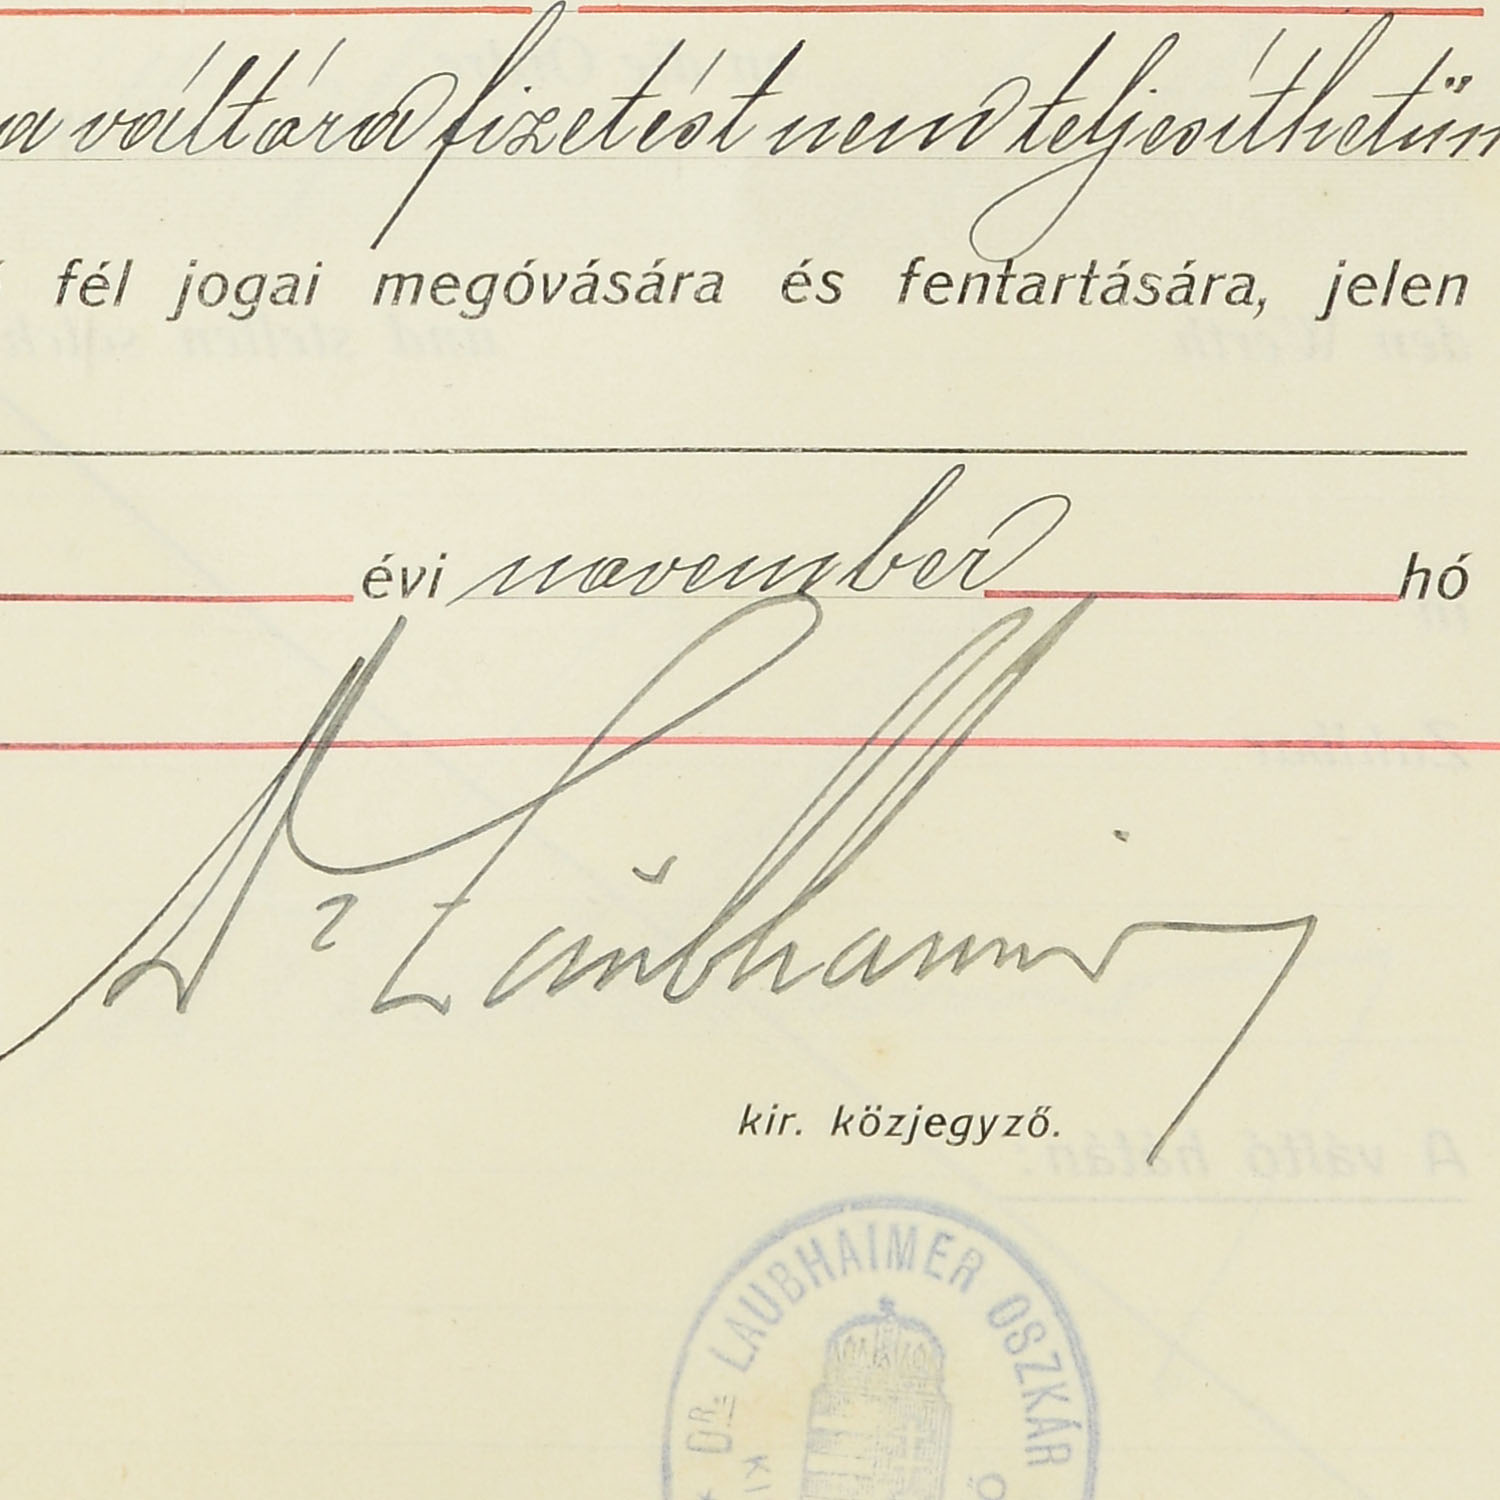 a váltóra fizetést nem teljesíthetün
fél jogai megóvására és fentartására, jelen
évi november hó
Dr Laubhaimer
kir. közjegyző.
A váltó hátán:
DR. LAUBHAIMER OSZKÁR
KI